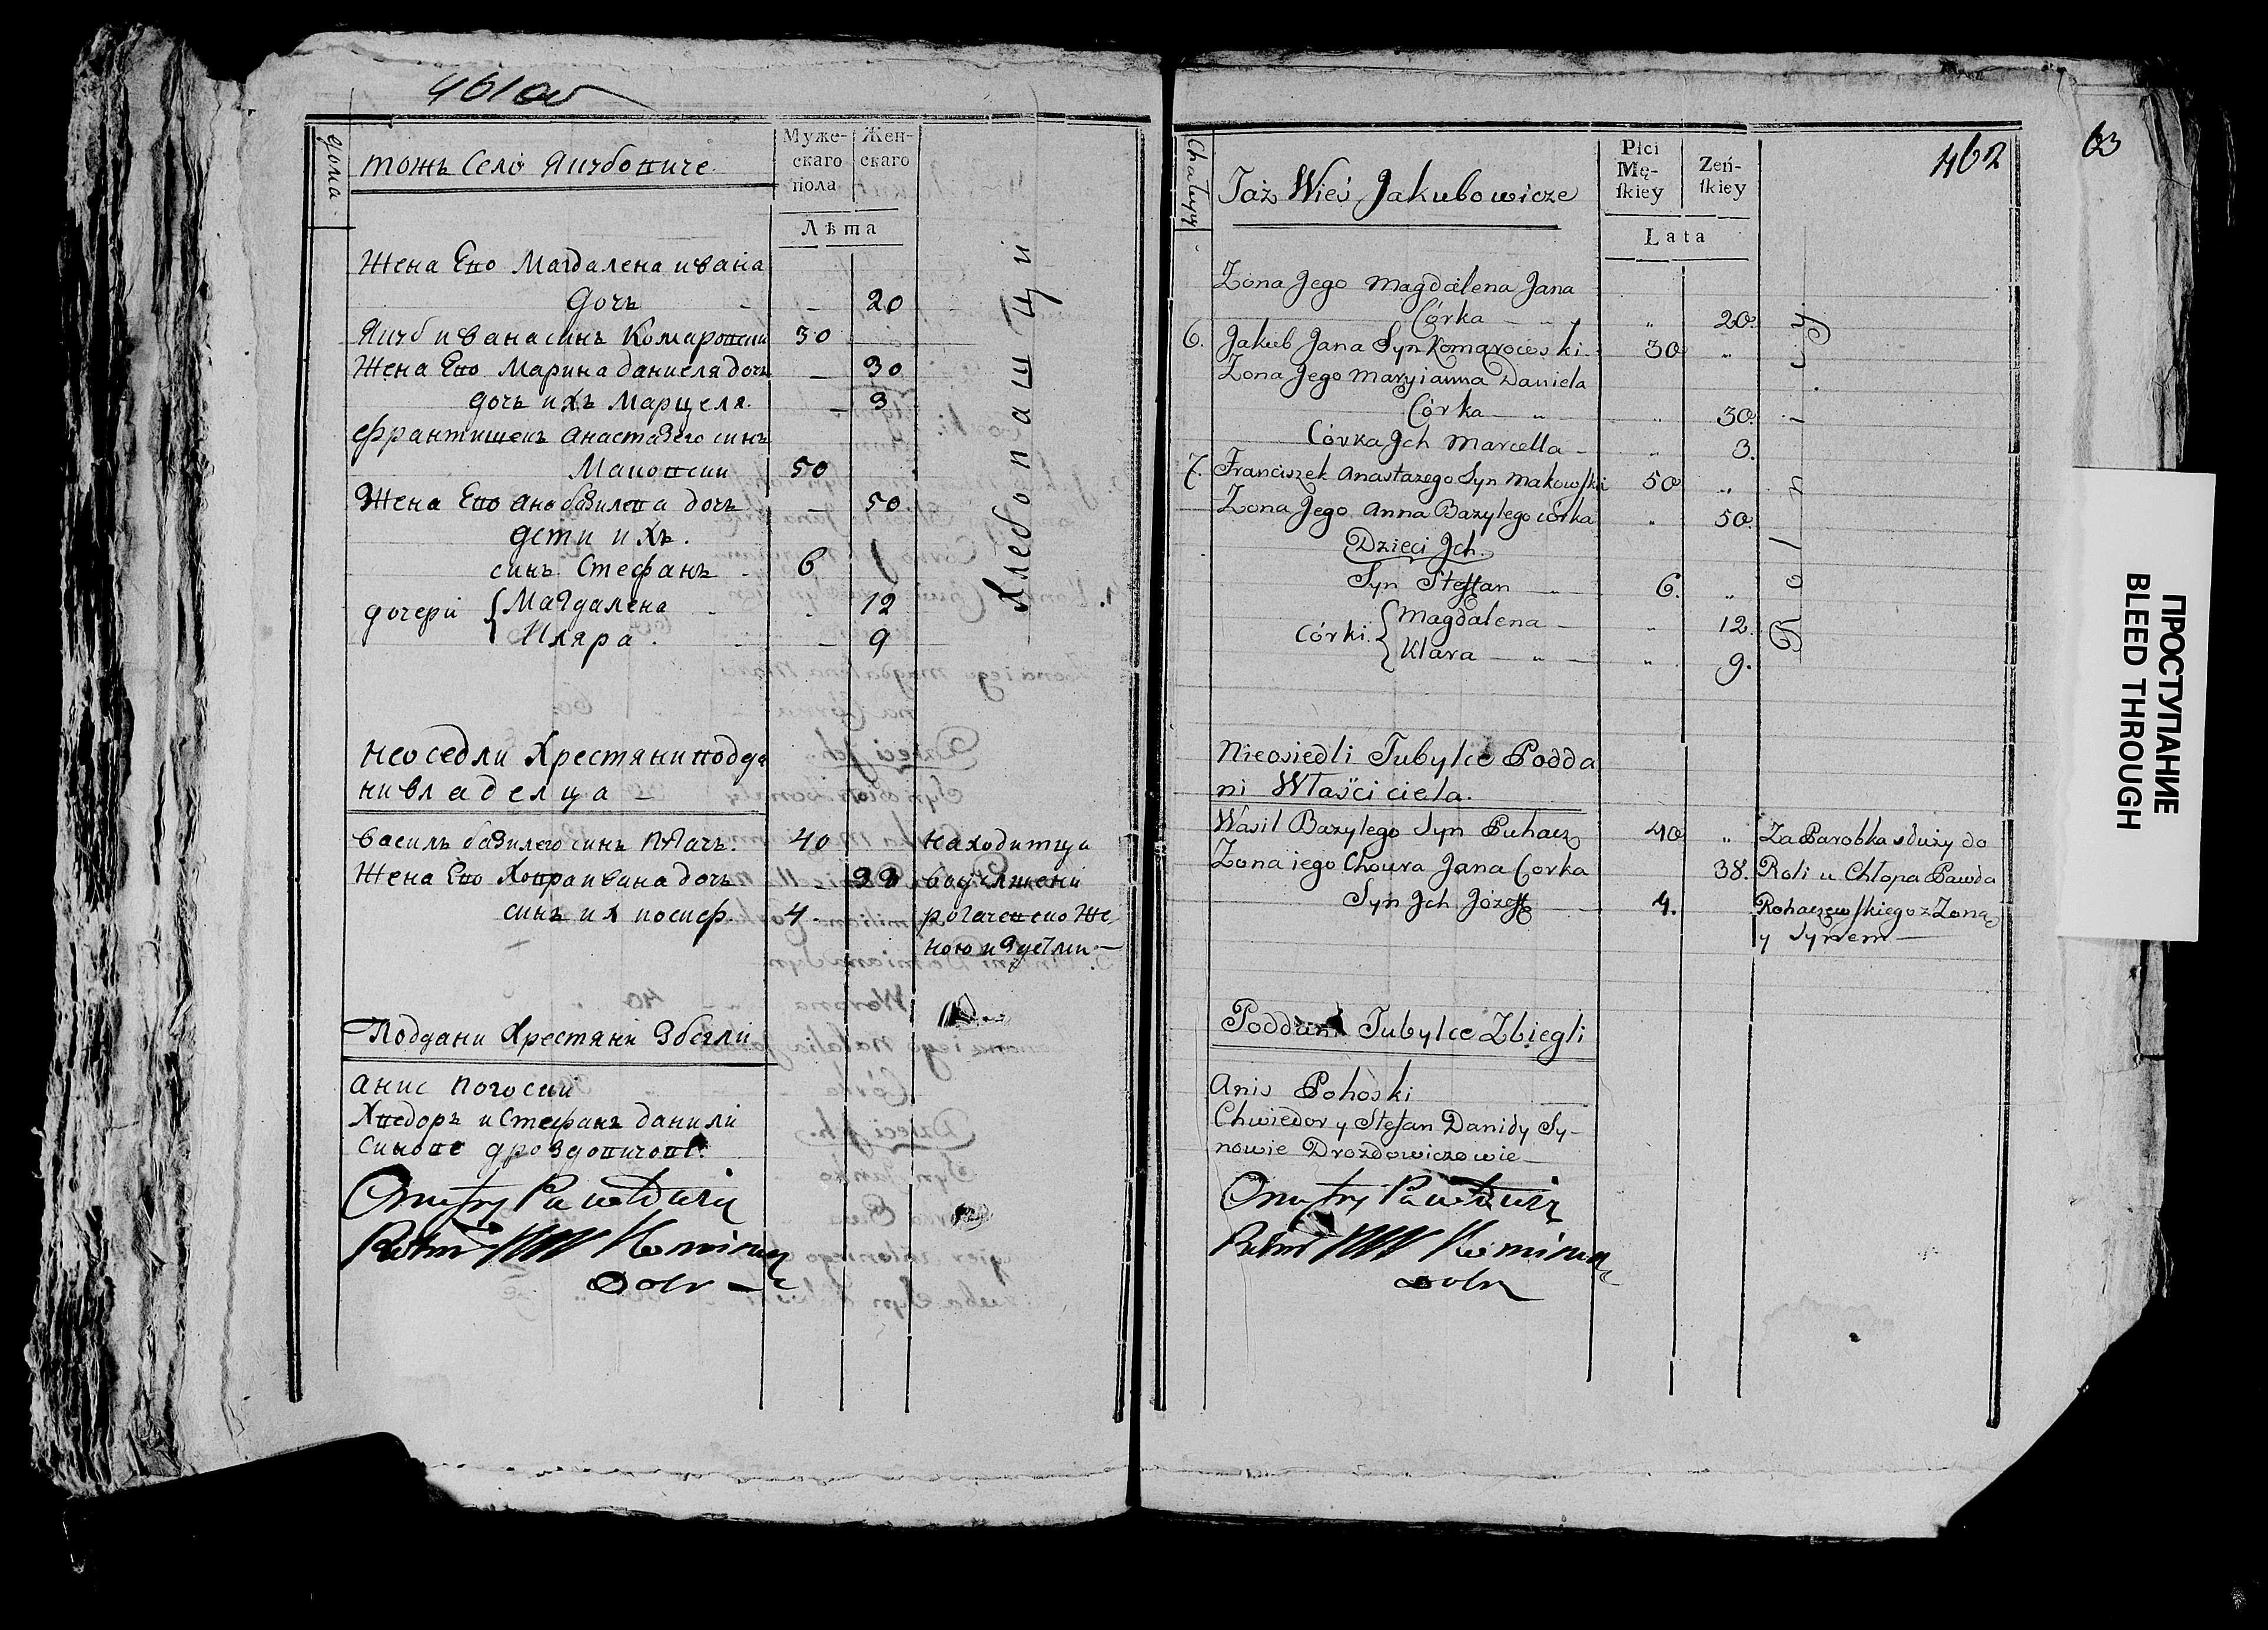 461 об
дома
тожъ Село Якубовиче
Муже-
скаго
пола
Жен-
скаго
Лѣта
Жена Ево Магдалена ивана
дочъ - - 20
Якуб ивана синъ Комаровски 30
Жена Ево Марина даниеля дочъ - 30
дочъ ихъ Марцеля - 3
Франтишекъ анастазего синъ
Маковски 50
Жена Ево ана базилева дочъ - 50
дети ихъ.
синъ Стефанъ - 6
дочери { Магдалена - - 12
Кляра. - - 9
Хлебопашцы
Неоседли Хрестяни подда
ни владелца -
Василь базилего синъ 40 находитца
Жена Ево Ховра ивана дочъ -
синъ их иосиф. 4 -
ною и
Поддани Хрестяни Збегли
Анис Погоски
Хведоръ и Стефанъ данили
Синове дроздовичове
Onufry Pawłowicz
462
63
Chałupy
Taż Wieś Jakubowicze
Płci
Mę-
ſkiey
Żeń-
ſkiey
Lata
Żona Jego Magdalena Jana
Córka - „ - „ 20.
6. Jakub Jana Syn Komarowski 30 „
Żona Jego Maryianna Daniela
Córka - „ „ 30.
Córka Jch Marcella - „ 3.
7. Franciszek Anastazego Syn Makowſki 50 „
Żona Jego Anna Bazylego córka „ 50.
Dzieci Jch.
Syn Steffan - 6. „
Córki. { Magdalena - „ 12.
Klara - „ - „ 9.
Rolnicy
Nieosiedli Tubylce Podda
ni Właściciela.
Wasil Bazylego Syn Puhacz 40 „ Za Parobka służy do
Żona iego Chowra Jana Corka 38. Roli u Chłopa Pawła
Syn Jch Józeff 4. Rohaczewſkiego z Żoną
y Synem
Poddani Tubylce Zbiegli
Anis Pohoski
Chwiedor y Stefan Daniły Sy-
nowie Drozdowiczowie
Onufry Pawłowicz
ПРОСТУПАНИЕ
BLEED THROUGH